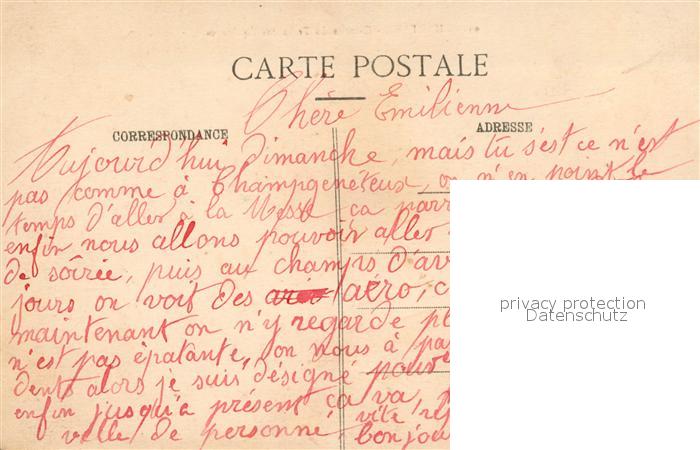 CARTE POSTALE
Chère Emilienne
CORRESPONDANCE
ADRESSE
Aujourd'hui dimanche, mais tu s'est ce n'est
pas comme à Champgeneteux, on n'en point le
temps d'aller à la Messe ça
enfin nous allons pouvoir aller
de soirée, puis aux champs d'av
jours on voit des aéro, c
maintenant on n'y regarde pl
n'est pas épatante, on nous à pa
dent alors je suis désigné pour
enfin jusqu'à présent ça va,
vite
velle de personne, bonjou
privacy protection
Datenschutz